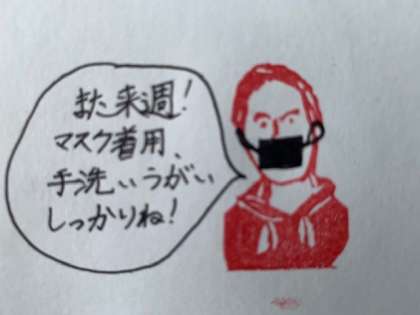 また来週!
マスク着用、
手洗いうがい
しっかりね!